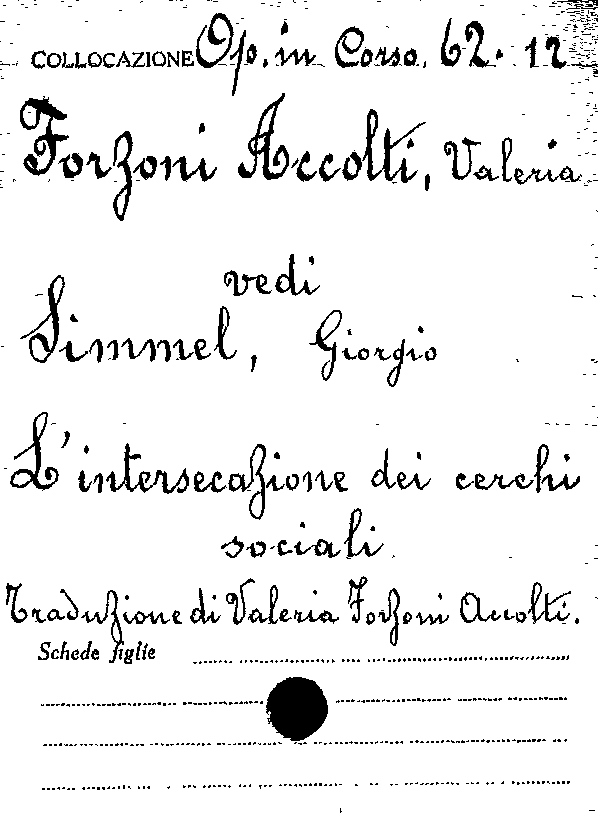 COLLOCAZIONE Op. in Corso. 62. 12
Forzoni Accolti, Valeria
vedi
Simmel, Giorgio
L'intersecazione dei cerchi
sociali
Traduzione di Valeria Forzoni Accolti.
Schede figlie